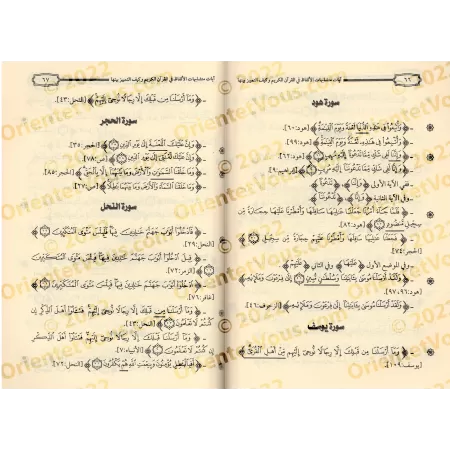 ٦٦
آيات متشابهات الألفاظ في القرآن الكريم وكيف التمييز بينها
سورة هود
﴿وَأُتْبِعُوا فِي هَذِهِ الدُّنْيَا لَعْنَةً وَيَوْمَ الْقِيَامَةِ﴾ [هود:٦٠].
﴿وَأُتْبِعُوا فِي هَذِهِ لَعْنَةً وَيَوْمَ الْقِيَامَةِ﴾ [هود:٩٩].
[هود:٦٢]
[إبراهيم:٩]
- ففي الآية الأولى
[هود:٨٢].
﴿فَجَعَلْنَا عَالِيَهَا سَافِلَهَا وَأَمْطَرْنَا عَلَيْهِمْ حِجَارَةً مِنْ سِجِّيلٍ﴾
[الحجر:٧٤]
- وفي الموضع الأول ﴿عَلَيْهَا﴾ وفي الثاني ﴿عَلَيْهِمْ﴾
﴿وَلَقَدْ أَرْسَلْنَا مُوسَى بِآيَاتِنَا وَسُلْطَانٍ مُبِينٍ ۝ إِلَى فِرْعَوْنَ وَمَلَئِهِ﴾
[هود:٩٦، ٩٧].
﴿وَلَقَدْ أَرْسَلْنَا مُوسَى بِآيَاتِنَا إِلَى فِرْعَوْنَ وَمَلَئِهِ﴾ [الزخرف:٤٦].
سورة يوسف
﴿وَمَا أَرْسَلْنَا مِنْ قَبْلِكَ إِلَّا رِجَالًا نُوحِي إِلَيْهِمْ مِنْ أَهْلِ الْقُرَى﴾
[يوسف:١٠٩].
آيات متشابهات الألفاظ في القرآن الكريم وكيف التمييز بينها
٦٧
- ﴿وَمَا أَرْسَلْنَا مِنْ قَبْلِكَ إِلَّا رِجَالًا نُوحِي إِلَيْهِمْ﴾ [النحل:٤٣].
سورة الحجر
﴿وَإِنَّ عَلَيْكَ اللَّعْنَةَ إِلَى يَوْمِ الدِّينِ﴾ [الحجر:٣٥].
﴿وَإِنَّ عَلَيْكَ لَعْنَتِي إِلَى يَوْمِ الدِّينِ﴾ [ص:٧٨].
﴿وَمَا خَلَقْنَا السَّمَاوَاتِ وَالْأَرْضَ وَمَا بَيْنَهُمَا إِلَّا بِالْحَقِّ﴾ [الحجر:٨٥].
﴿وَمَا خَلَقْنَا السَّمَاءَ وَالْأَرْضَ وَمَا بَيْنَهُمَا بَاطِلًا﴾ [ص:٢٧].
سورة النحل
﴿فَادْخُلُوا أَبْوَابَ جَهَنَّمَ خَالِدِينَ فِيهَا فَلَبِئْسَ مَثْوَى الْمُتَكَبِّرِينَ﴾
[النحل:٢٩].
﴿قِيلَ ادْخُلُوا أَبْوَابَ جَهَنَّمَ خَالِدِينَ فِيهَا فَبِئْسَ مَثْوَى الْمُتَكَبِّرِينَ﴾
[الزمر:٧٢].
﴿ادْخُلُوا أَبْوَابَ جَهَنَّمَ خَالِدِينَ فِيهَا فَبِئْسَ مَثْوَى الْمُتَكَبِّرِينَ﴾
[غافر:٧٦].
﴿وَمَا أَرْسَلْنَا مِنْ قَبْلِكَ إِلَّا رِجَالًا نُوحِي إِلَيْهِمْ فَاسْأَلُوا أَهْلَ الذِّكْرِ إِنْ
كُنْتُمْ لَا تَعْلَمُونَ﴾ [النحل:٤٣].
﴿وَمَا أَرْسَلْنَا قَبْلَكَ إِلَّا رِجَالًا نُوحِي إِلَيْهِمْ فَاسْأَلُوا أَهْلَ الذِّكْرِ
إِنْ كُنْتُمْ لَا تَعْلَمُونَ﴾ [الأنبياء:٧].
﴿أَفَبِالْبَاطِلِ يُؤْمِنُونَ وَبِنِعْمَتِ اللَّهِ هُمْ يَكْفُرُونَ﴾ [النحل:٧٢].
OrientetVous.com © 2022